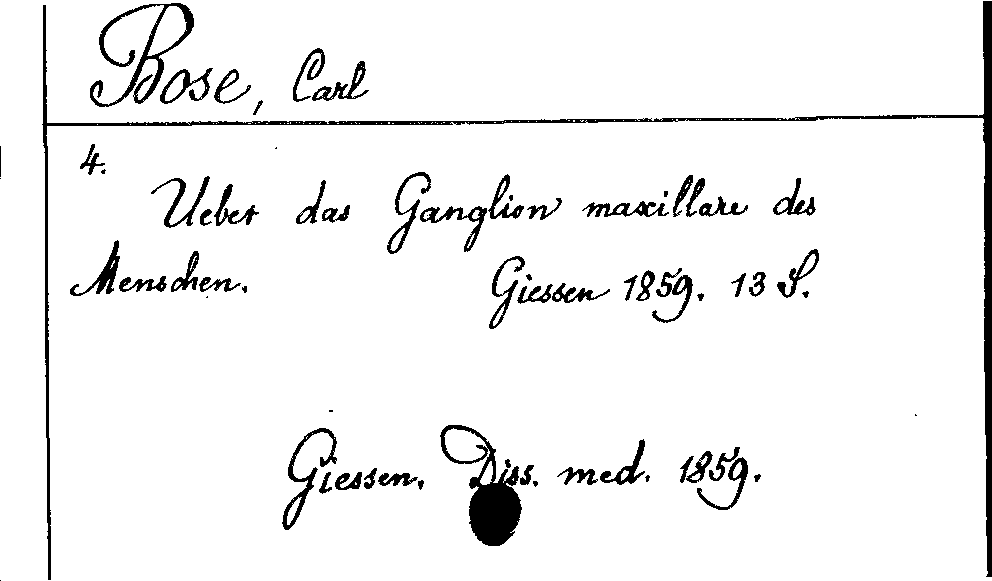 Bose, Carl
4.
Ueber das Ganglion maxillare des
Menschen. Giessen 1859. 13 S.
Giessen. Diss. med. 1859.